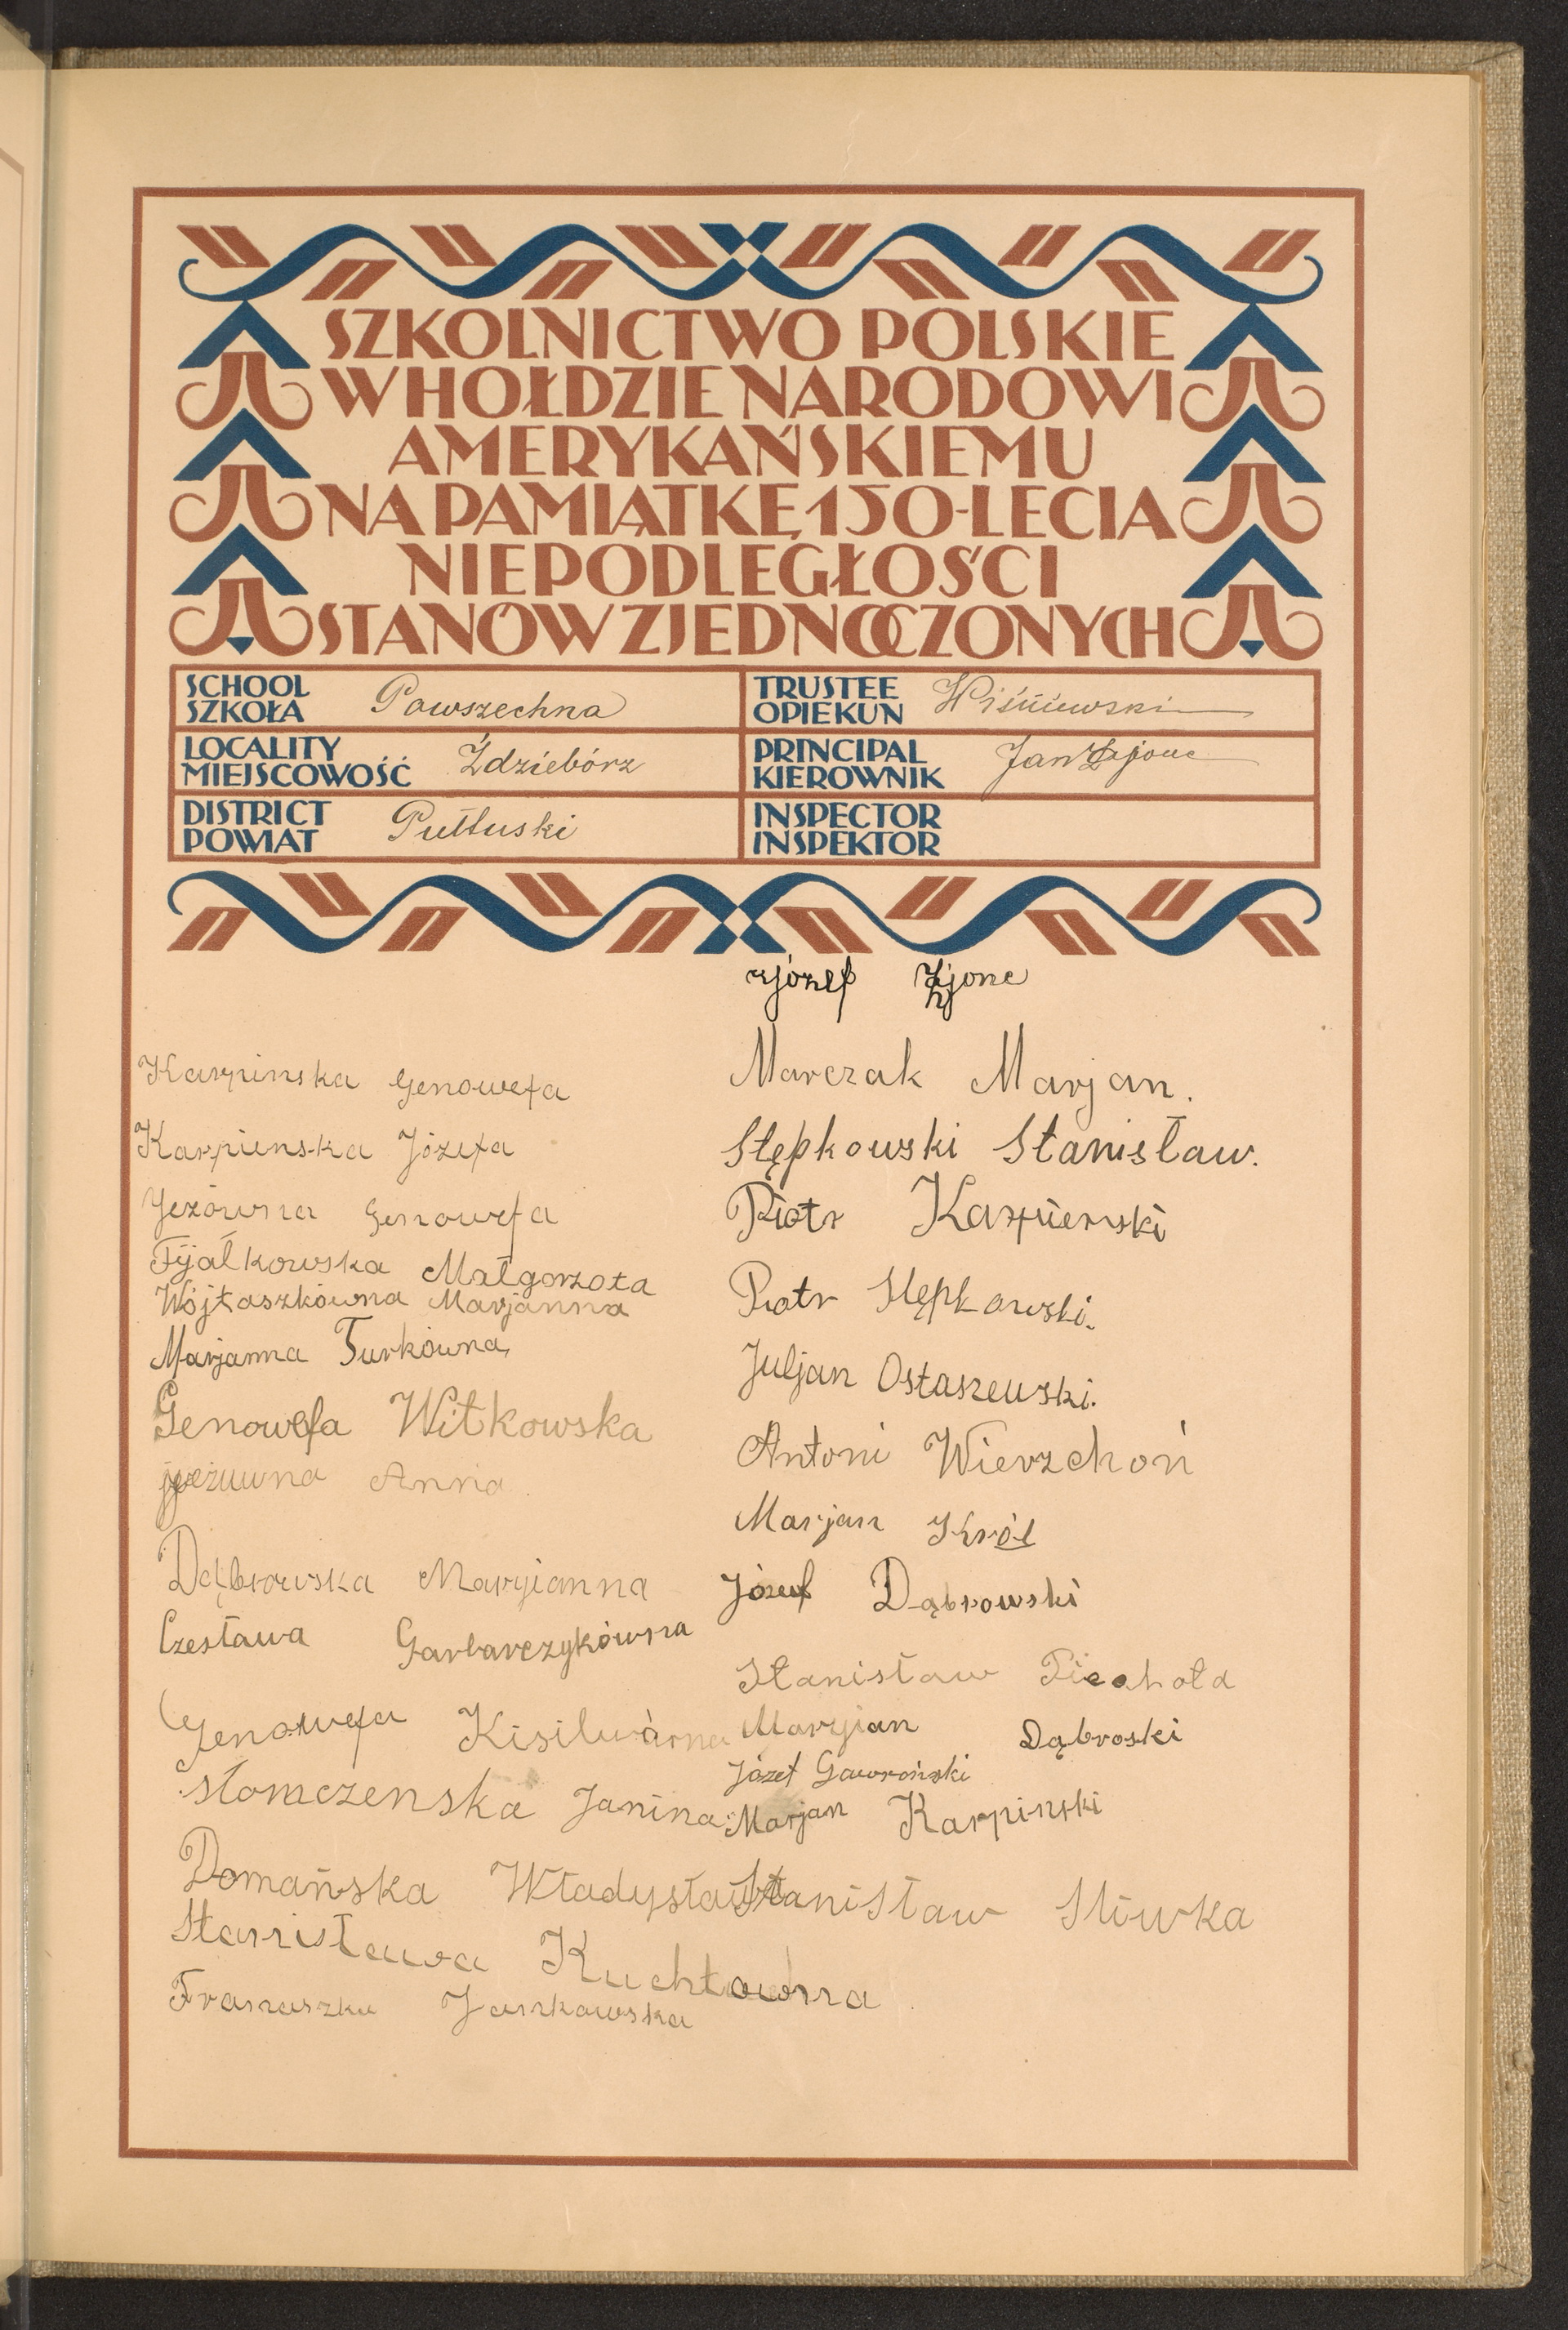 SZKOLNICTWO POLSKIE
W HOŁDZIE NARODOWI
AMERYKAŃSKIEMU
NA PAMIĄTKĘ 150-LECIA
NIEPODLEGŁOŚCI
STANÓW ZJEDNOCZONYCH
SCHOOL
SZKOŁA
Powszechna
TRUSTEE
OPIEKUN
Wiśniewski
LOCALITY
MIEJSCOWOŚĆ
Ździebórz
PRINCIPAL
KIEROWNIK
Jan
DISTRICT
POWIAT
Pułtuski
INSPECTOR
INSPEKTOR
Karpinska Genowefa
Karpienska Józefa
Jeżówna Genowefa
Fijałkowska Małgorzota
Wójtaszkówna Marjanna
Marjanna Turkówna
Genowefa Witkowska
Anna
Dąbrowska Maryianna
Czesława Garbarczykówna
Genowefa
Słomczenska Janina
Domańska Władysława
Stanisława Kuchtowna
Jaszkawska
Józef
Marczak Marjan.
Stępkowski Stanisław.
Piotr Karpienski
Piotr Stępkowski.
Juljan Ostaszewski.
Antoni Wierzchoń
Marjan Król
Józef Dąbrowski
Stanisław Piechota
Maryian Dąbroski
Józef Gawroński
Marjan Karpinski
Stanisław Sliwka